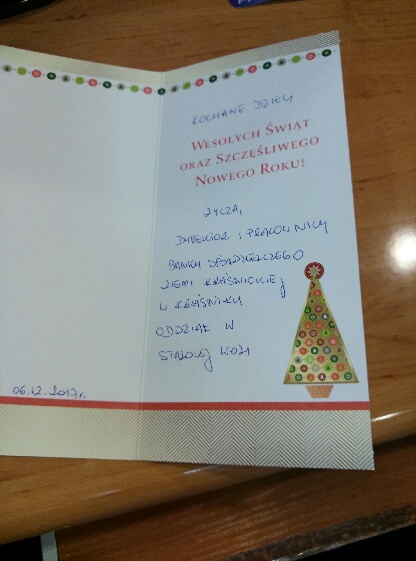 KOCHANE DZIECI
WESOŁYCH ŚWIĄT
ORAZ SZCZĘŚLIWEGO
NOWEGO ROKU!
ŻYCZĄ,
DYREKTOR I PRACOWNICY
BANKU SPÓŁDZIELCZEGO
ZIEMI KRAŚNICKIEJ
W KRAŚNIKU
ODDZIAŁ W
STALOWEJ WOLI
06.12.2017r.